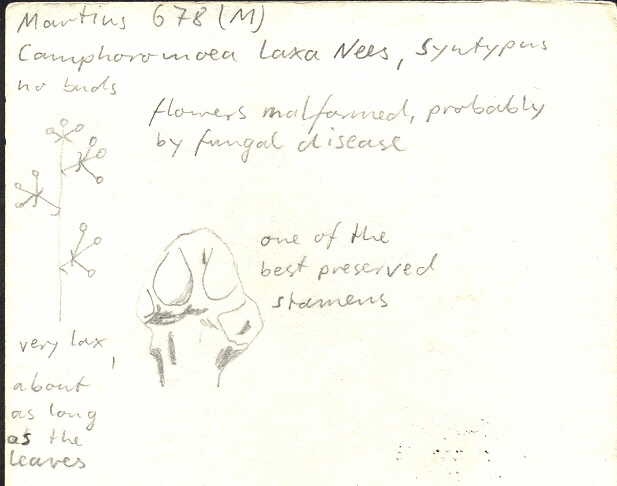 Martius 678 (M)
Camphoromoea laxa Nees, Syntypus
no buds
flowers malformed, probably
by fungal disease
one of the
best preserved
stamens
very lax,
about
as long
as the
leaves